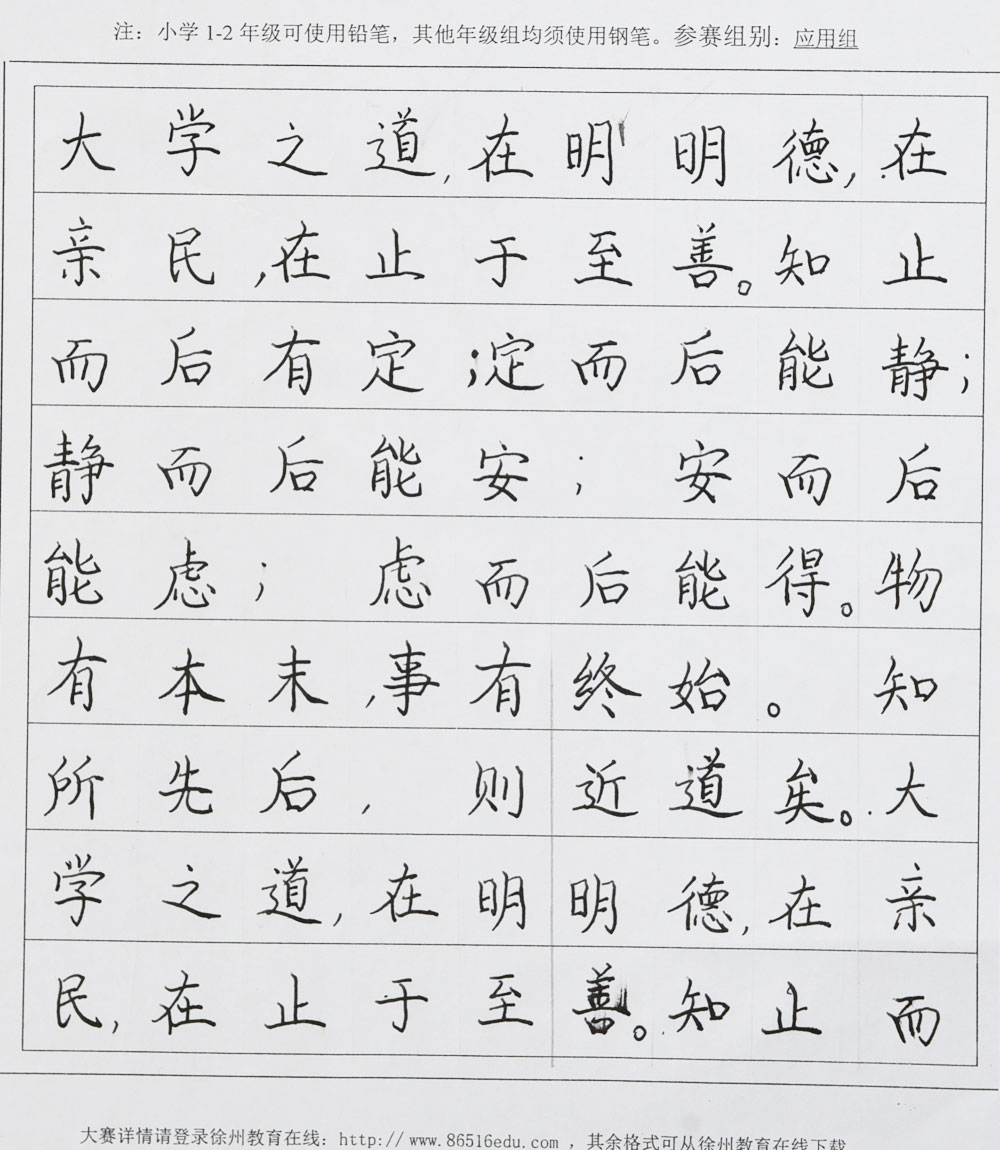 注：小学1-2年级可使用铅笔，其他年级组均须使用钢笔。参赛组别：应用组
大学之道，在明明德，在
亲民，在止于至善。知止
而后有定；定而后能静；
静而后能安；安而后
能虑；虑而后能得。物
有本末，事有终始。知
所先后，则近道矣。大
学之道，在明明德，在亲
民，在止于至善。知止而
大赛详情请登录徐州教育在线：http://www.86516edu.com，其余格式可从徐州教育在线下载